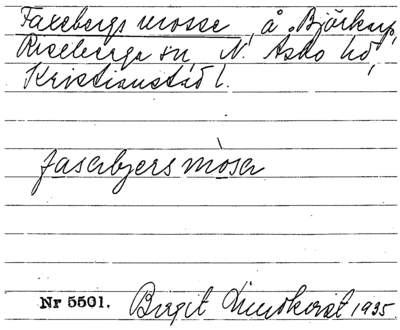 Faxebergs mosse, å Björkup,
Riseberga sn, N. Åsbo hd,
Kristianstads l.
fasabjers mosa
Nr 5501. Birgit Lindkvist 1935